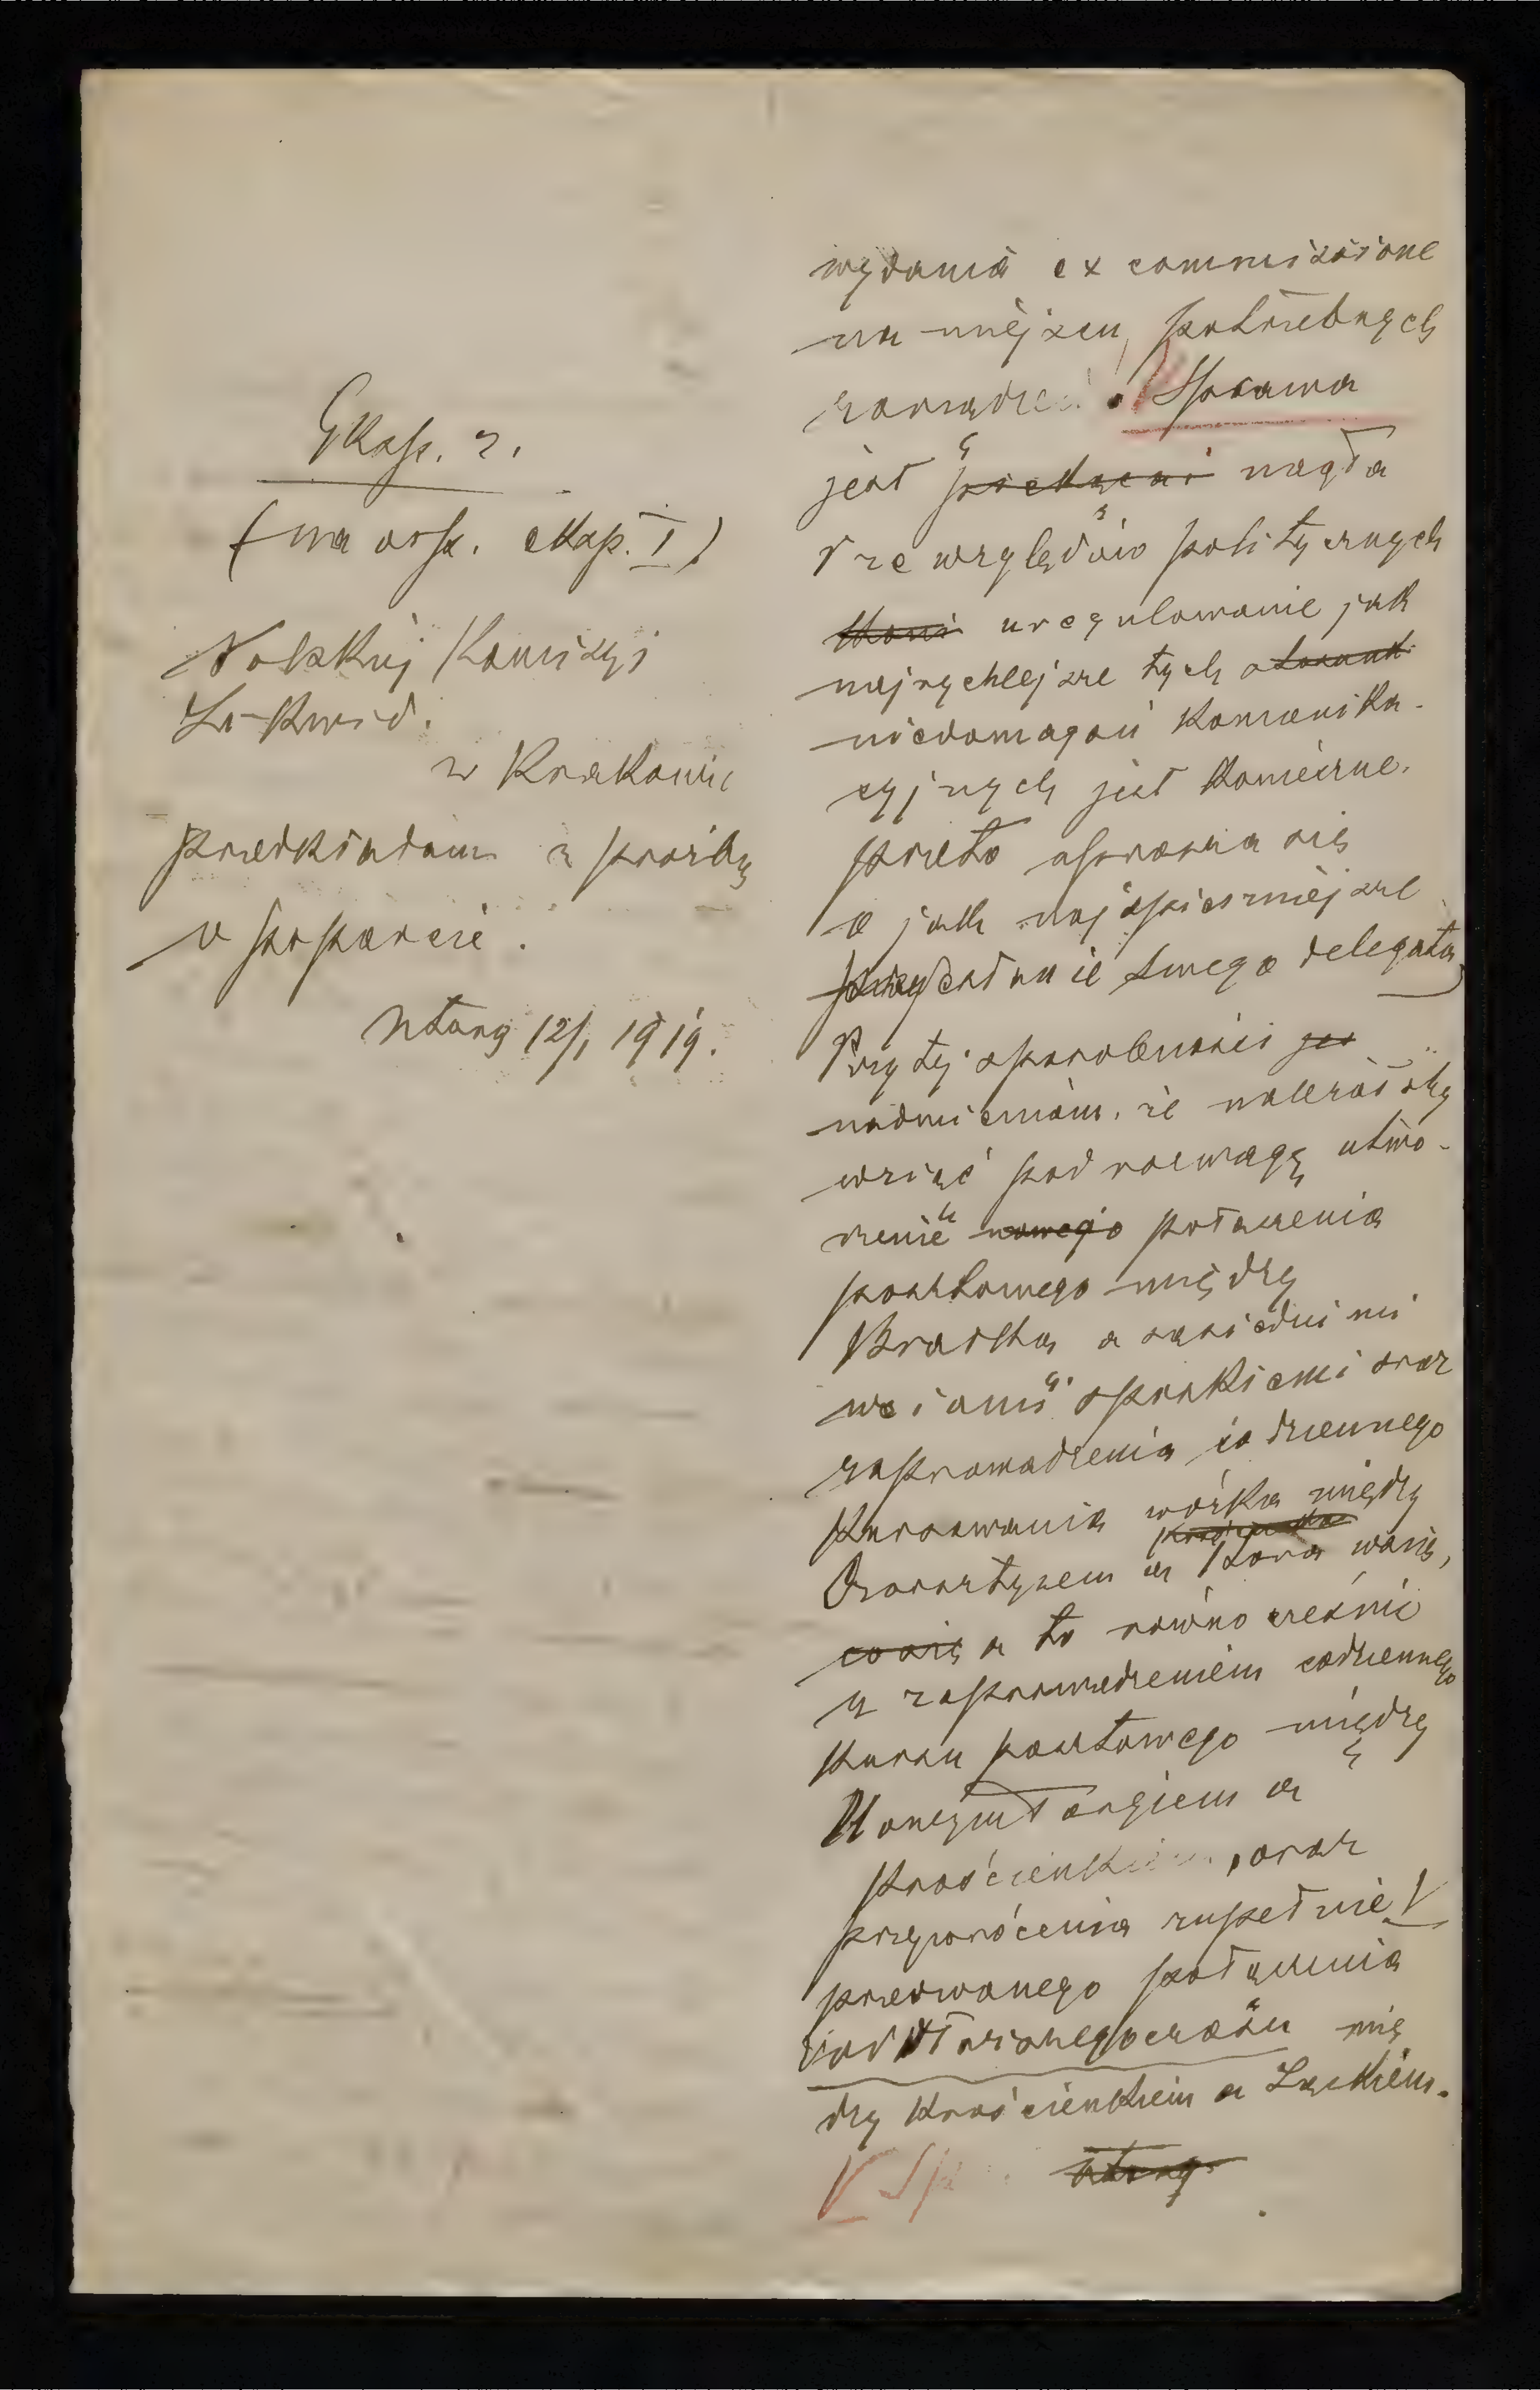 Eksp. 2.
(na odp. eksp. I)
Polskiej Komisyi
Likwid.
w Krakowie
przedkładam z prośbą
o poparcie.
Ntarg 12/1 1919.
wydania ex commissione
na miejscu potrzebnych
zarządzeń. Sprawa
jest piekącą nagła
i ze względów politycznych
uregulowanie jak
najrychlejsze tych stosunk
niedomagań komunika-
cyjnych jest konieczne,
przeto uprasza się
o jak najśpieszniejsze
przysłanie swego delegata
Przy tej sposobności
nadmieniam, że należałoby
wziąć pod rozwagę utwo-
rzenie nowego połączenia
pocztowego między
a sąsiednimi
wsiami spiskiemi oraz
zaprowadzenia codziennego
kursowania wózka między
Czorsztynem a wsią,
a to równocześnie
z zaprowadzeniem codziennego
kursu pocztowego między
Nowymtargiem a
Krościenkiem, oraz
przywrócenia zupełnie
przerwanego połączenia
od dłuższego czasu mię
dzy Krościenkiem a Łąckiem.
Ntarg